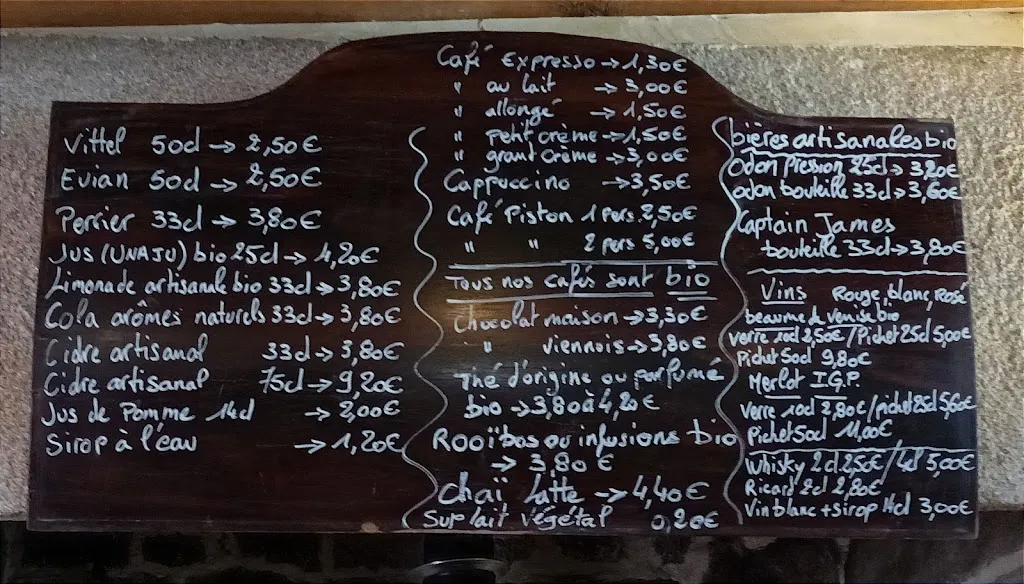 Vittel 50cl → 2,50€
Evian 50cl → 2,50€
Perrier 33cl → 3,80€
Jus (UNAJU) bio 25cl → 4,20€
Limonade artisanale bio 33cl → 3,80€
Cola arômes naturels 33cl → 3,80€
Cidre artisanal 33cl → 3,80€
Cidre artisanal 75cl → 9,20€
Jus de Pomme 14cl → 2,00€
Sirop à l'eau → 1,20€
Café Expresso → 1,30€
" au lait → 3,00€
" allongé → 1,50€
" petit crème → 1,50€
" grand crème → 3,00€
Cappuccino → 3,50€
Café Piston 1 pers. 2,50€
" " 2 pers 5,00€
Tous nos cafés sont bio
Chocolat maison → 3,30€
" viennois → 3,80€
Thé d'origine ou parfumé
bio → 3,80 à 4,20€
Rooïbos ou infusions bio
→ 3,80 €
Chaï Latte → 4,40€
Sup lait végétal 0,20€
bières artisanales bio
Odon Pression 25cl → 3,20€
odon bouteille 33cl → 3,60€
Captain James
bouteille 33cl → 3,80€
Vins Rouge, blanc, Rosé
beaume de venise bio
verre 10cl 2,50€ / Pichet 25cl 5,00€
Pichet 50cl 9,80€
Merlot I.G.P.
Verre 10cl 2,80€ / pichet 25cl 5,60€
Pichet 50cl 11,00€
Whisky 2cl 2,50€ / 4cl 5,00€
Ricard 2cl 2,80€
Vin blanc + sirop 14cl 3,00€